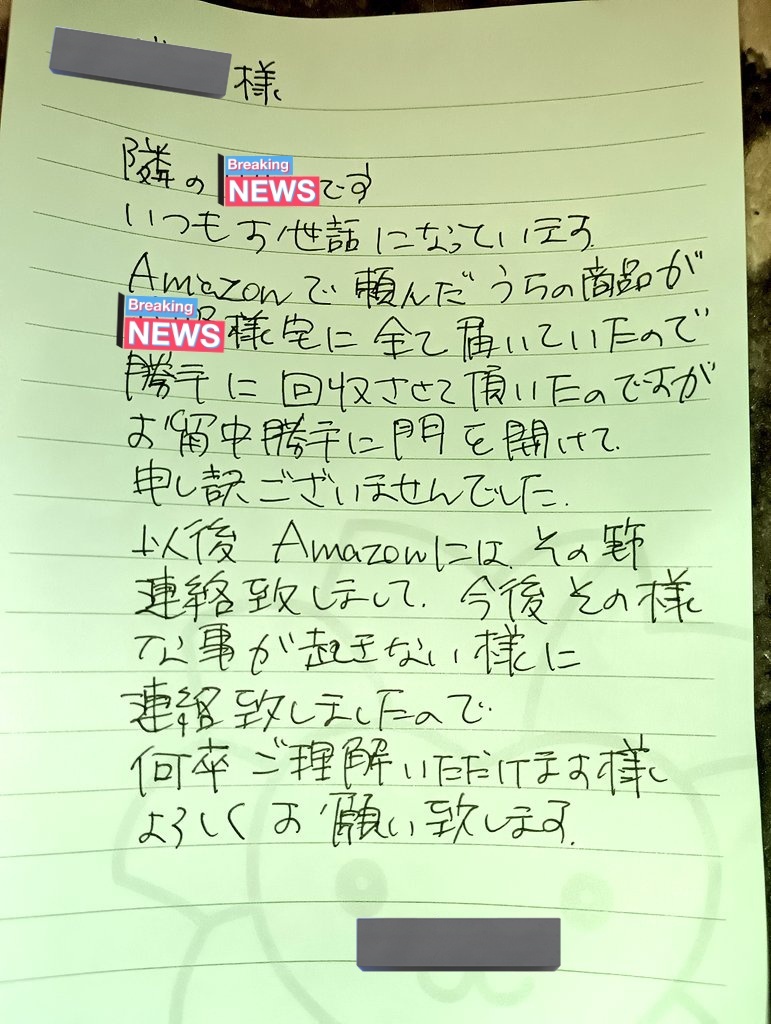 様
隣の Breaking NEWS です
いつもお世話になっています
Amazonで頼んだうちの商品が
Breaking NEWS 様宅に全て届いていたので
勝手に回収させて頂いたのですが
お留守中勝手に門を開けて
申し訳ございませんでした.
以後 Amazonには その節
連絡致しまして. 今後その様
な事が起きない様に
連絡致しましたので
何卒ご理解いただけます様
よろしくお願い致します.